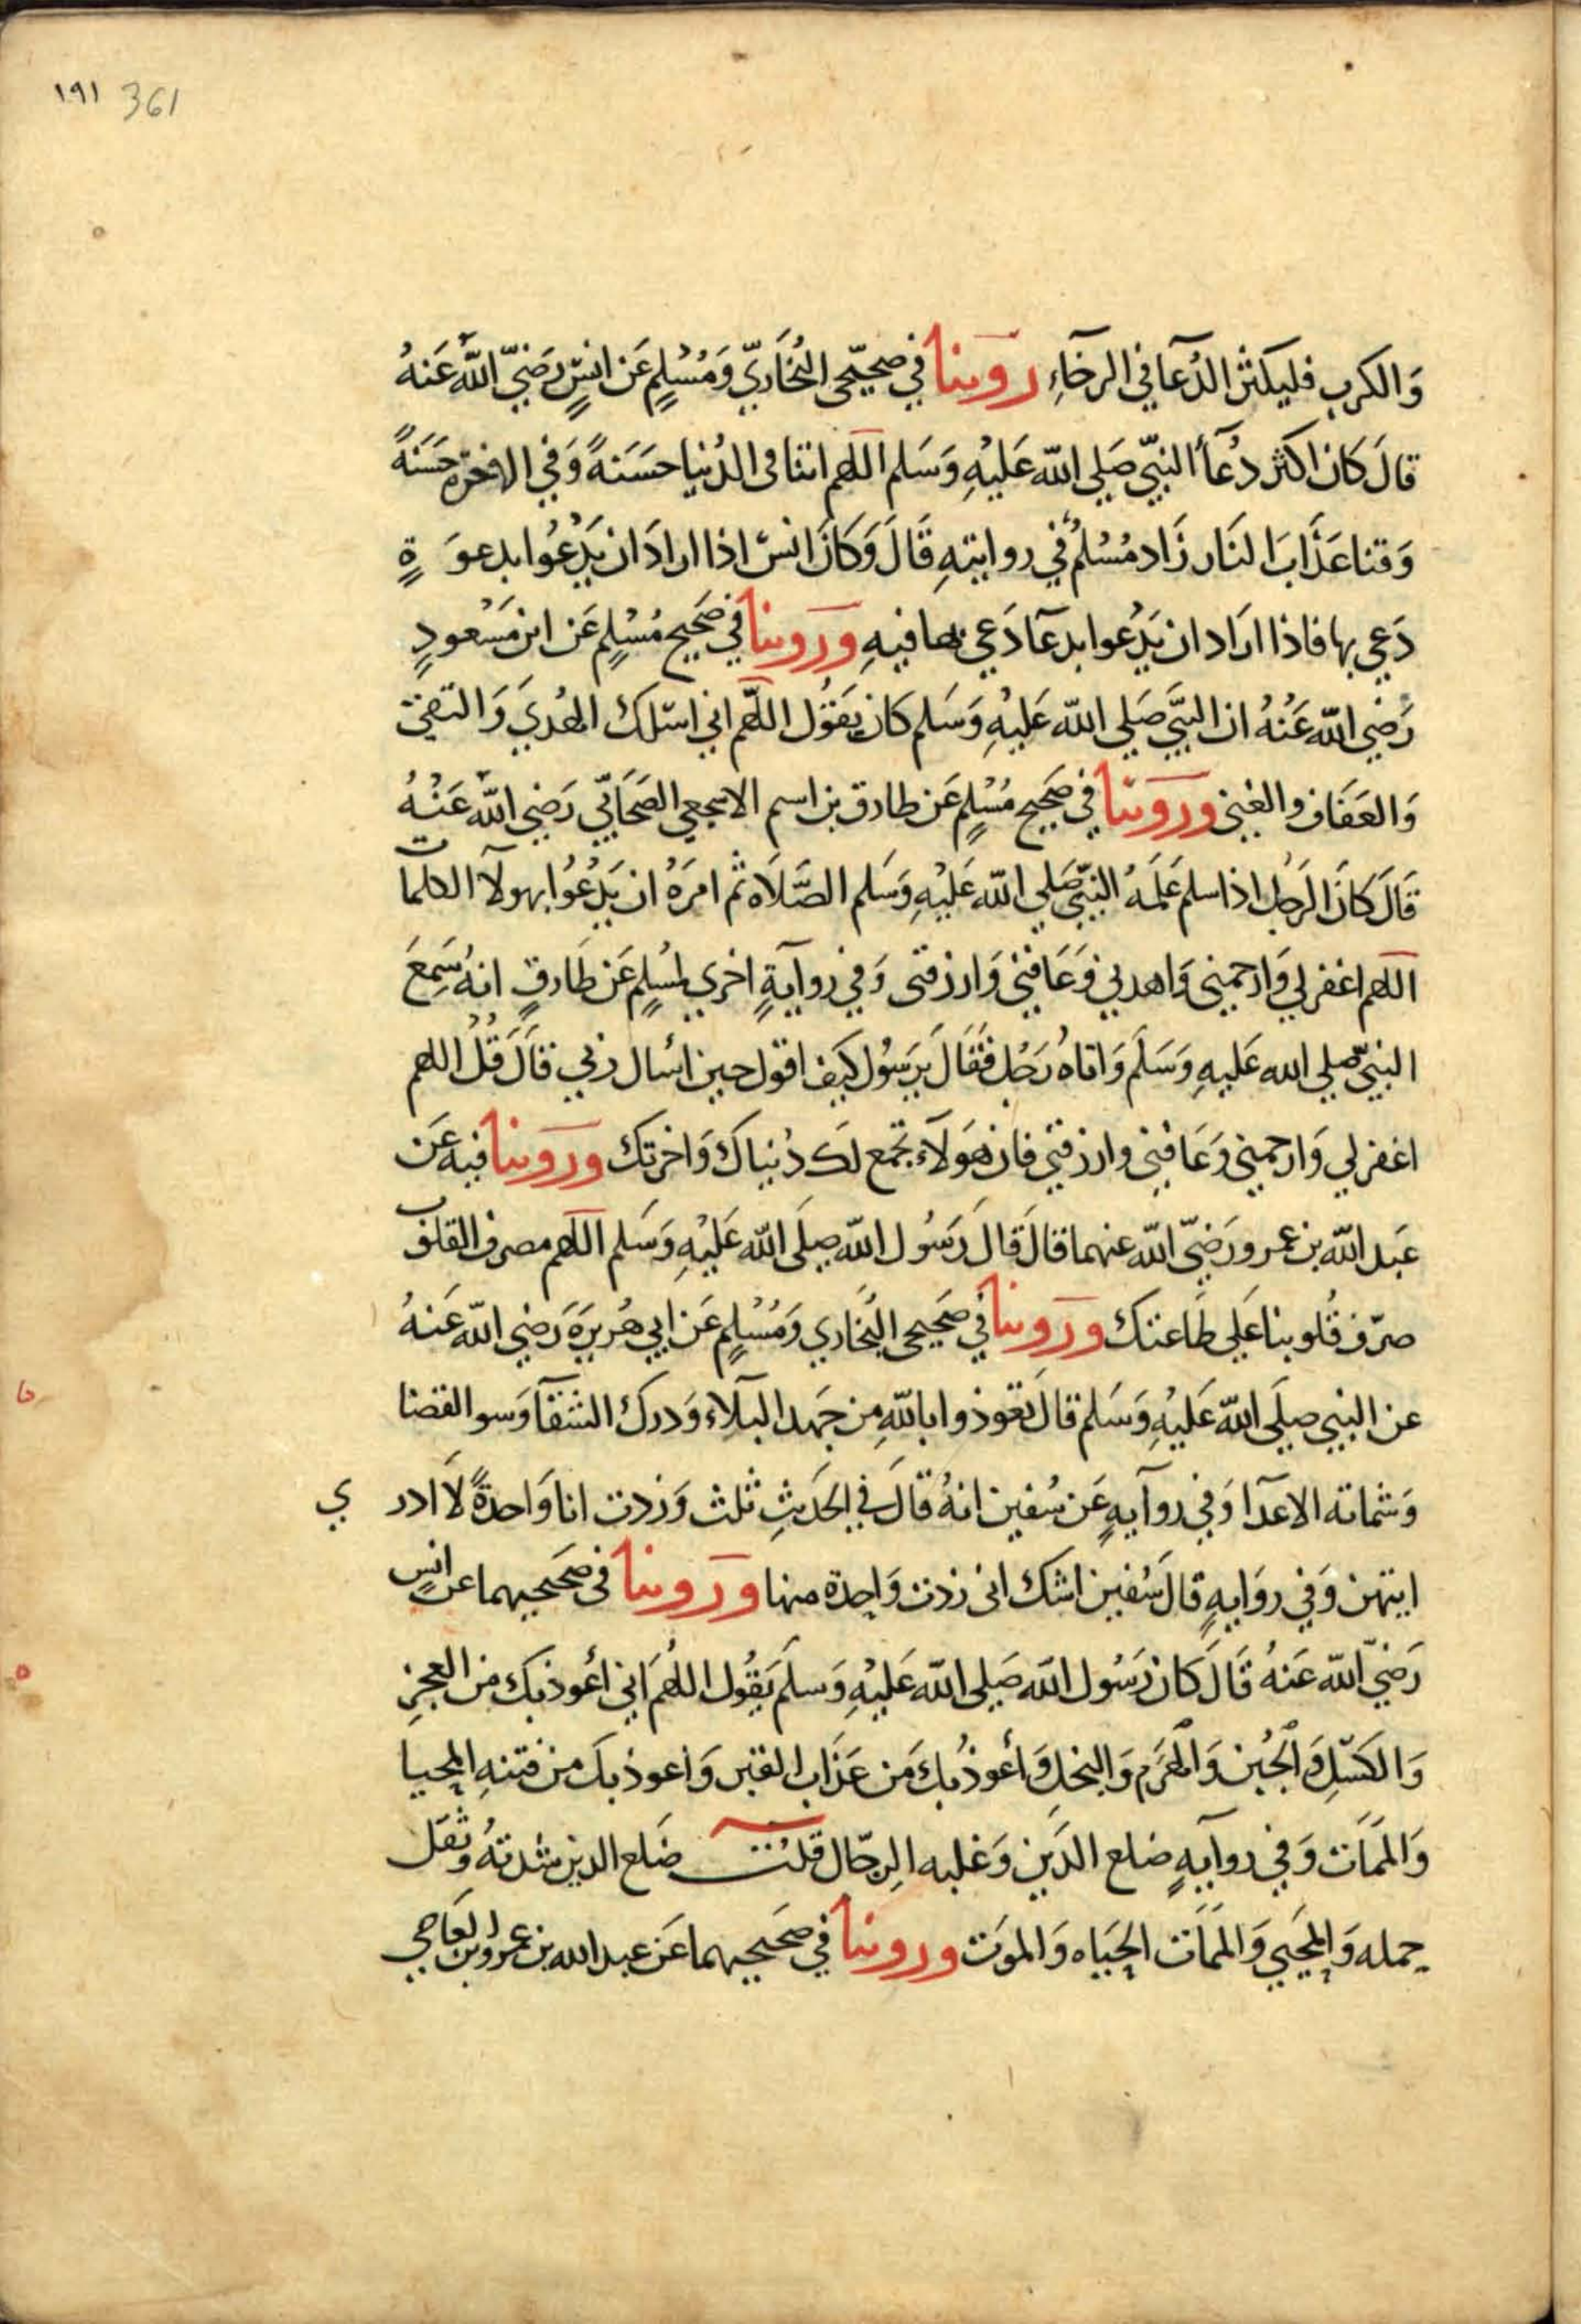 ١٩١ 361
وَالكرب فليكثر الدُعآ في الرخآءِ روينا في صحيحي البُخَاريّ وَمُسْلِمٍ عَن انسٍ رَضيَ اللّه عَنهُ
قالَ كَانَ اكثر دُعآء النبيّ صَلي اللّه عَليْهِ وَسَلم اللهم اتنا فى الدُنيا حسَنةً وَفي الاخرَه حسَنَةً
وَقنا عَذَابَ النَار زَاد مُسْلمٌ في روايتهِ قَالَ وَكَانَ انسٌ اذا ارادَ ان يَدْعُوا بدعوَ ةٍ
دَعي بها فاذا ارَاد ان يَدْعوا بدعآ دَعي بها فيهِ وروينا في صَحيح مُسْلِمٍ عَن ابن مَسْعودٍ
رَضي اللّه عَنْهُ ان النبيَّ صَلي اللّه عَليْهِ وَسَلم كان يقوُل اللّهم اني اسئلك الهُديَ وَالتقيٰ
وَالعَفَاف والغني وروينا في صَحيح مُسْلِمٍ عَن طارق بن اسم الاشجعي الصَحَابيّ رَضي اللّه عَنْهُ
قَالَ كانَ الرَجُل اذا سلم عَلمَهُ النبيّ صَلي اللّه عَليْهِ وَسَلم الصَّلَاه ثم امرَهُ ان يَدْعُوُا بهولآ الكلمات
اللهم اغفر لي وَارحمني وَاهدني وَعَافني وَارزقنى وَفي روايةٍ اخري لمسْلِمٍ عَن طَارقٍ انهُ سَمعَ
النبيّ صلي الله عَليهِ وَسَلمَ وَاتاهُ رَجُل فقَالَ يَرسُول كيَف اقول حين اسْال ربي قالَ قُل اللهم
اغفر لي وَارحمني وَعَافني وارزقني فان هَولَآء تجمع لَك دُنياكَ وَاخرتك وروينا فيه عَن
عَبد اللّه بن عمرو رَضيّ اللّه عنهما قالَ قَالَ رَسُول اللّه صلَى اللّه عَليْهِ وَسَلم اللهم مصرف القلوب
صرّف قُلوبنا عَلي طَاعتك وروينا في صَحيحي البُخَاري وَمُسْلِمٍ عَن ابي هُريرَة رَضي اللّه عَنهُ
عن النبي صلَي اللّه عَليْهِ وَسَلم قالَ تعوذوا باللّهِ من جَهد البَلآء وَدرك الشقآ وَسو القضا
وَشماتة الاعدَا وَفي روآيهٍ عَن سُفين انهُ قالَ في الحَديثِ ثلث وَزدت انا وَاحدةً لَا ادر ي
ايتهن وَفي روَايهٍ قالَ سُفين اشك انى زدت وَاحِدة منها وروينا فى صَحَيحيهما عَن انسٍ
رَضيّ اللّه عَنهُ قَالَ كَان رَسُول اللّه صَلي اللّه عَليْهِ وَسَلمَ يقُول اللهُم اني أعُوذ بك من العجزِ
وَالكَسَلِ وَالجُبن وَالهرَم وَالبخل وَأعُوذ بكَ مَن عَذَاب القبر وَاعوذ بكَ من فتنهِ المحيا
وَالممَات وَفي روآيهٍ ضلع الدَين وَغلبه الرجَال قلت ضلع الدين شدتهُ وثقل
حمله وَالمحيَي وَالممَات الحيَاه وَالموَت وروينا في صَحيحيهما عَن عبد الله بن عمرو بن العَاصي